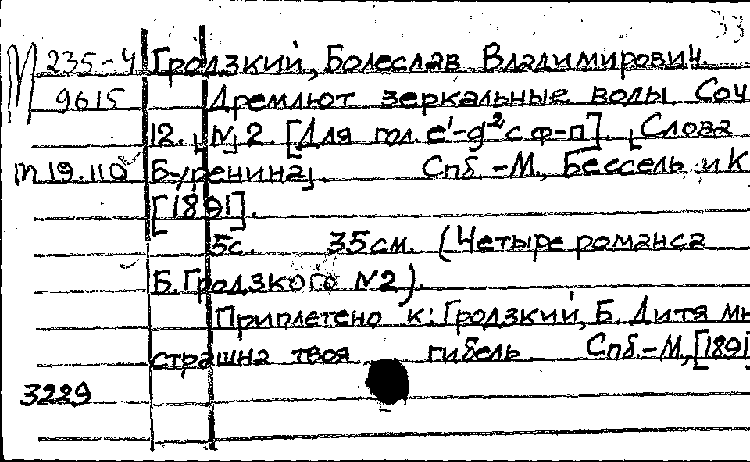 М 235-4 Гродзкий, Болеслав Владимирович
9615 Дремлют зеркальные воды Соч
12. N 2 [Для гол. e¹-g² с ф-п]. Слова
т 19.110 Буренина. Спб.-М., Бессель и К
[1891].
5с. 35см. (Четыре романса
Б. Гродзкого №2).
Приплетено к: Гродзкий, Б. Дитя мы
страшна твоя гибель Спб.-М, [1891]
3229